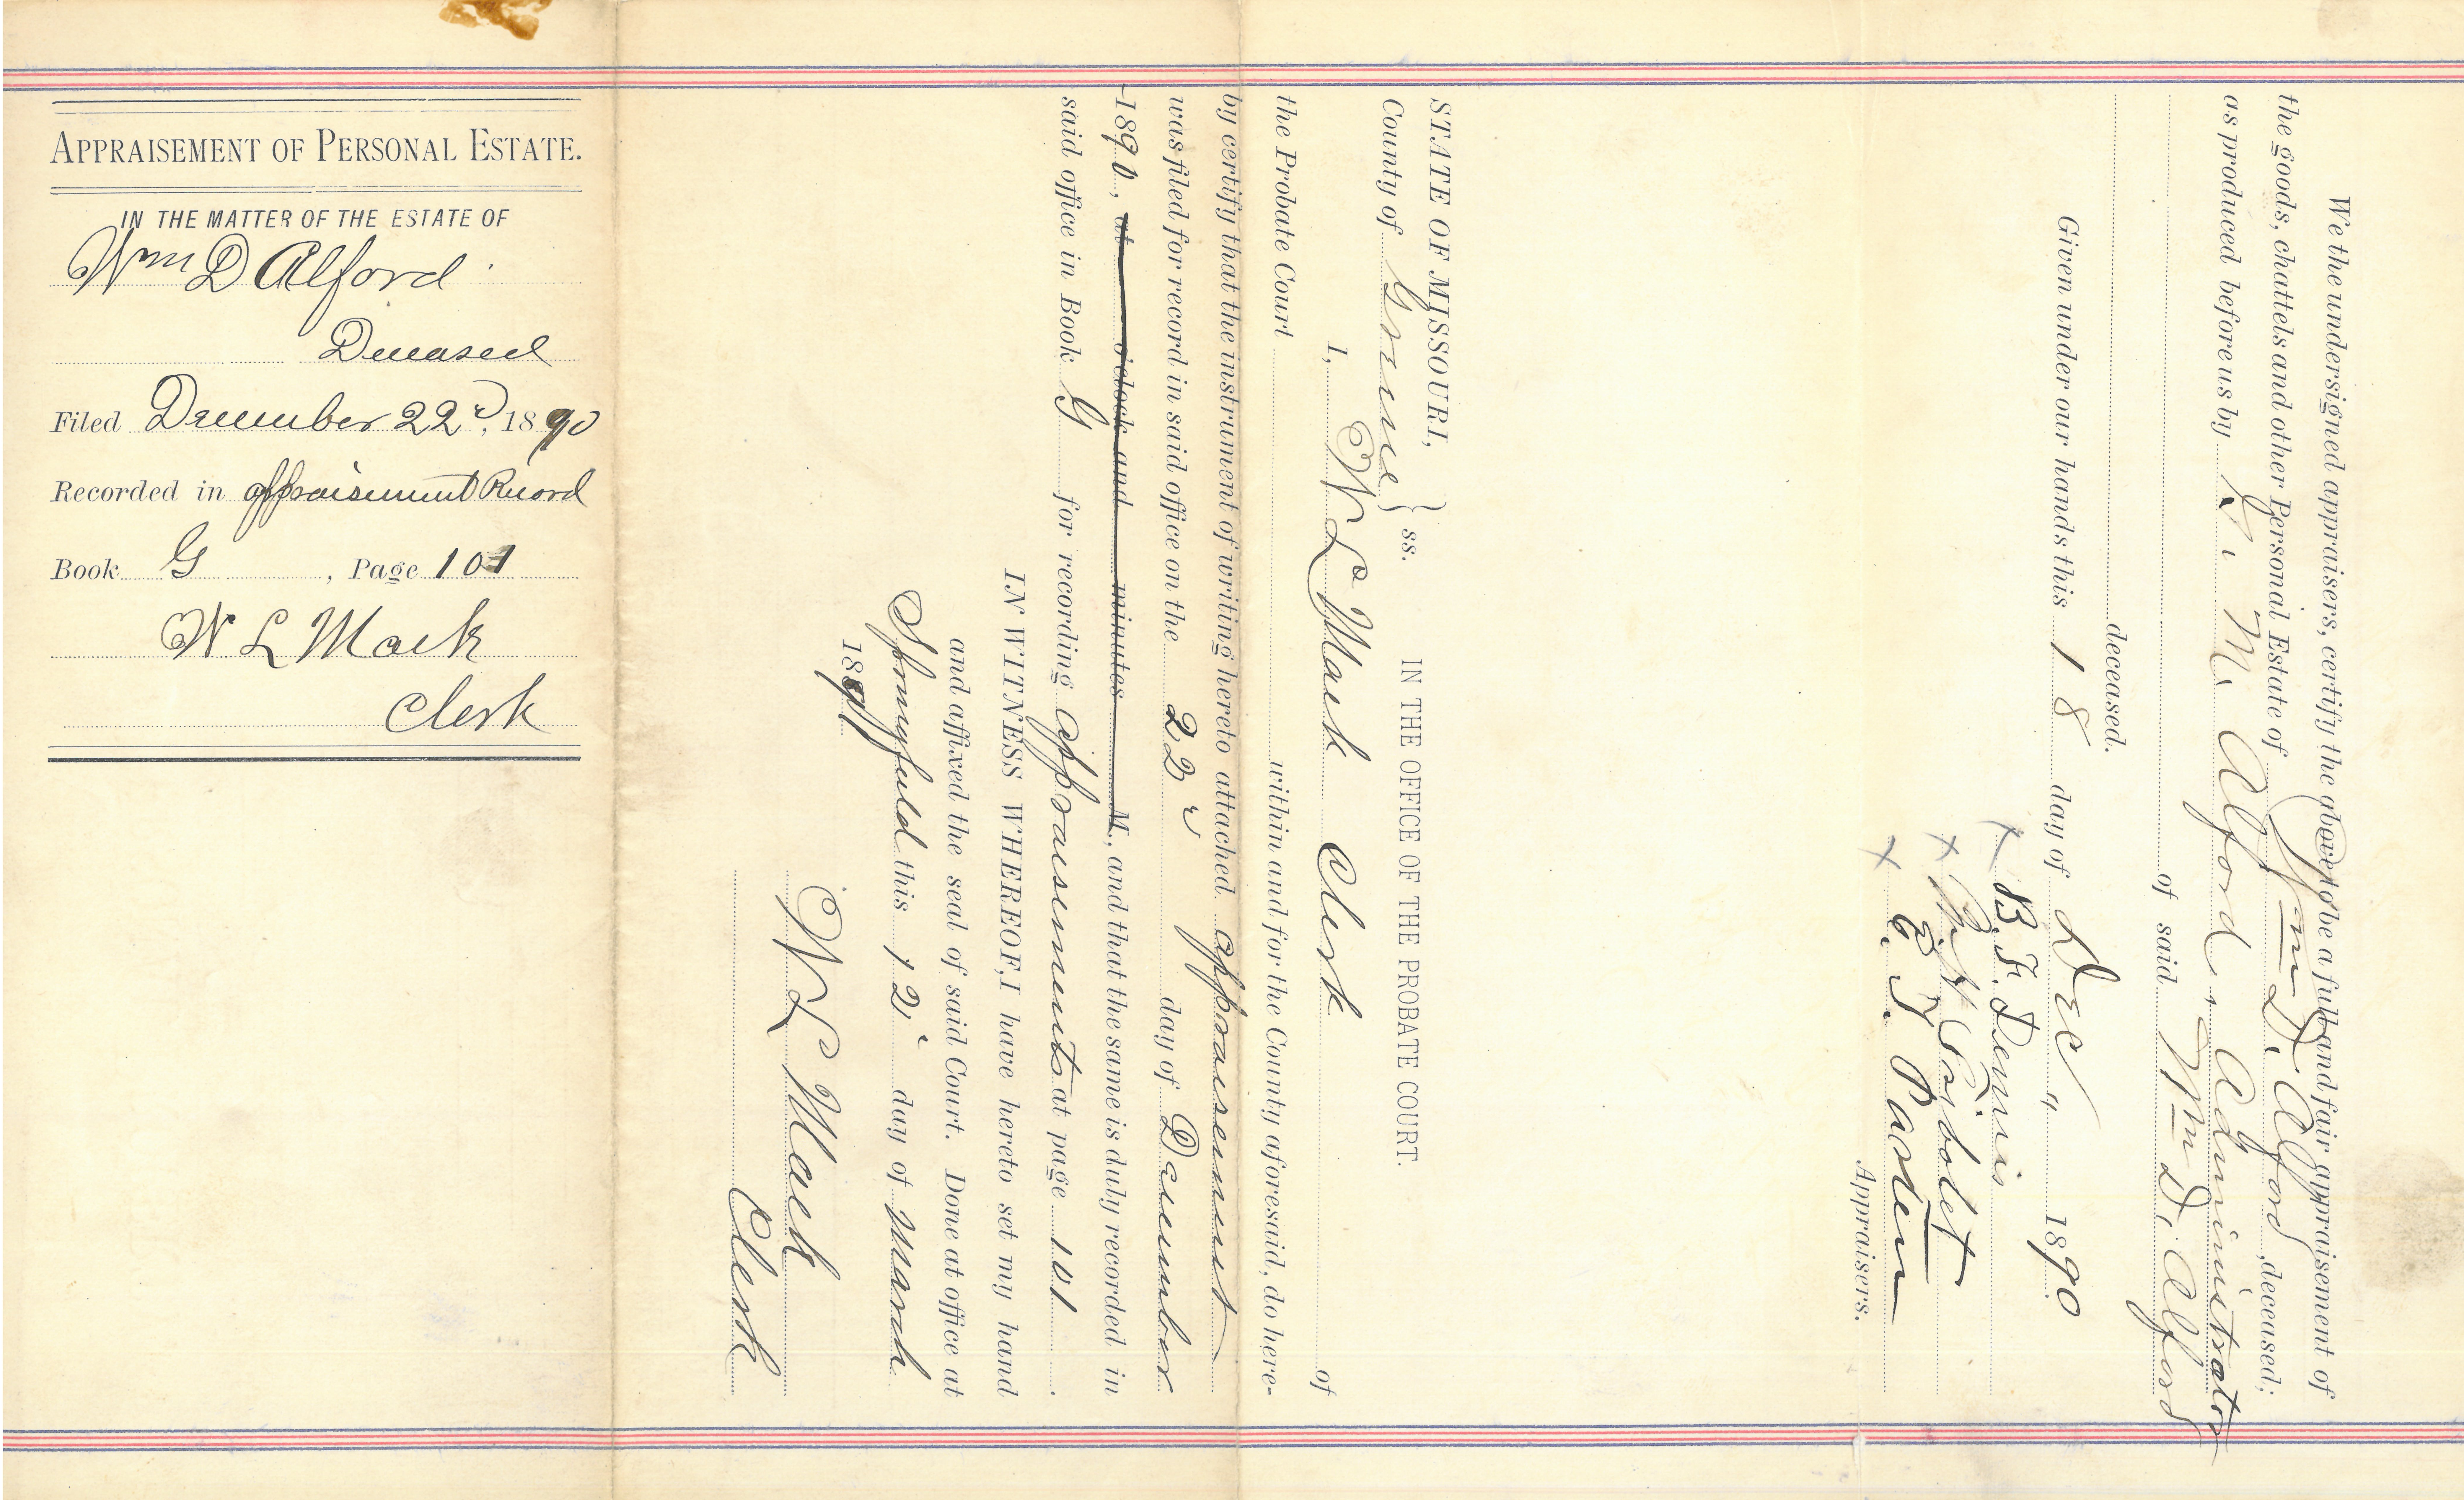 APPRAISEMENT OF PERSONAL ESTATE.
IN THE MATTER OF THE ESTATE OF
Wm D Alford
Deceased
Filed December 22d, 1890
Recorded in appraisement Record
Book G, Page 101
W L Mack
Clerk
We the undersigned appraisers, certify the above to be a full and fair appraisement of
the goods, chattels and other Personal Estate of Wm D. Alford, deceased;
as produced before us by M. Alford, Administrator
of said Wm D. Alford
deceased.
Given under our hands this 18 day of Dec " 1890
x B. F. Dennis
x
x T. Parten
Appraisers.
STATE OF MISSOURI,
County of Greene } ss. IN THE OFFICE OF THE PROBATE COURT.
I, W L Mack Clerk of
the Probate Court within and for the County aforesaid, do here-
by certify that the instrument of writing hereto attached appraisement
was filed for record in said office on the 22d day of December
1890, at o'clock and minutes M., and that the same is duly recorded in
said office in Book G for recording Appraisements at page 101.
IN WITNESS WHEREOF, I have hereto set my hand
and affixed the seal of said Court. Done at office at
Springfield this 12" day of March
1891
W L Mack
Clerk